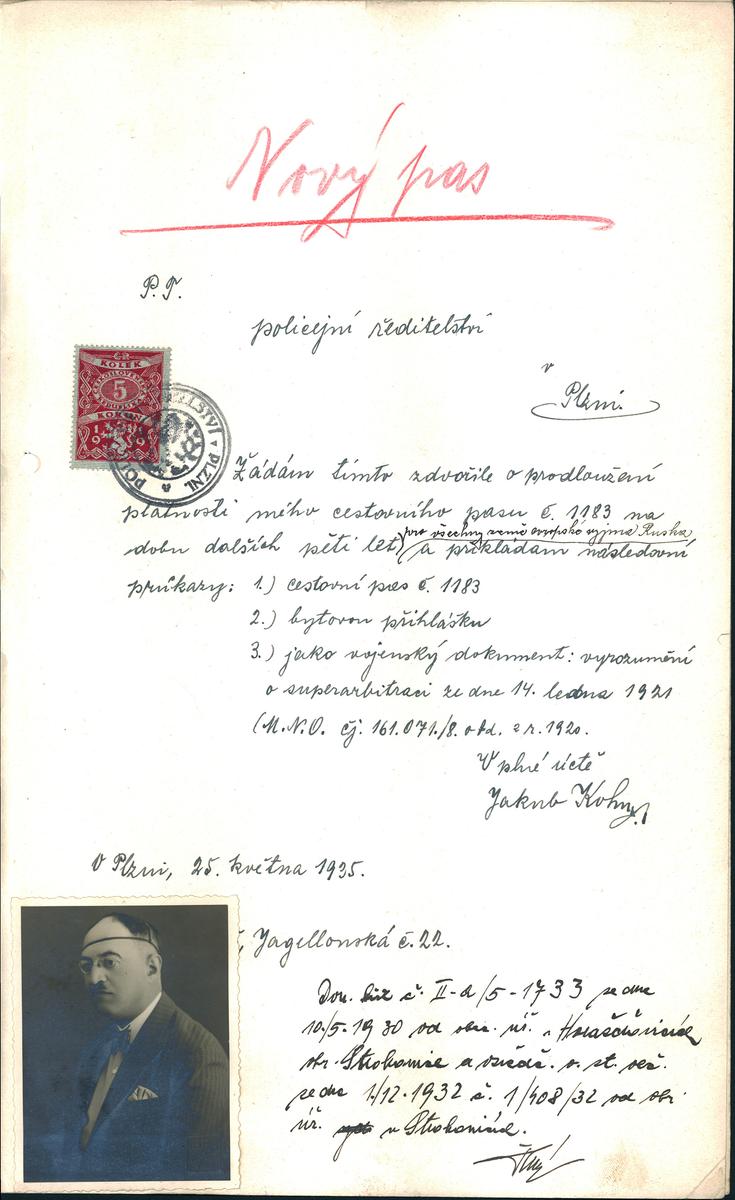 Nový pas
P. T.
policejní ředitelství
v
Plzni.
ČR
KOLEK
5
KORUN
1919
PLZNI
Žádám tímto zdvořile o prodloužení
platnosti mého cestovního pasu č. 1183 na
pro všechny země evropské vyjma Ruska
dobu dalších pěti let, a přikládám následovní
průkazy: 1.) cestovní pas č. 1183
2.) bytovou přihlášku
3.) jako vojenský dokument: vyrozumění
o superarbitraci ze dne 14. ledna 1921
(M.N.O. čj. 161.071./8. odd. z r. 1920.
V plné úctě
Jakub Kohn
V Plzni, 25. května 1935.
, Jagellonská č. 22.
Dom. list č. II-a/5-1733 ze dne
10./5.1930 od obec. úř. v
okr. a osvědč. o st. obč.
ze dne 1./12.1932 č. 1/408/32 od okr.
úř. v